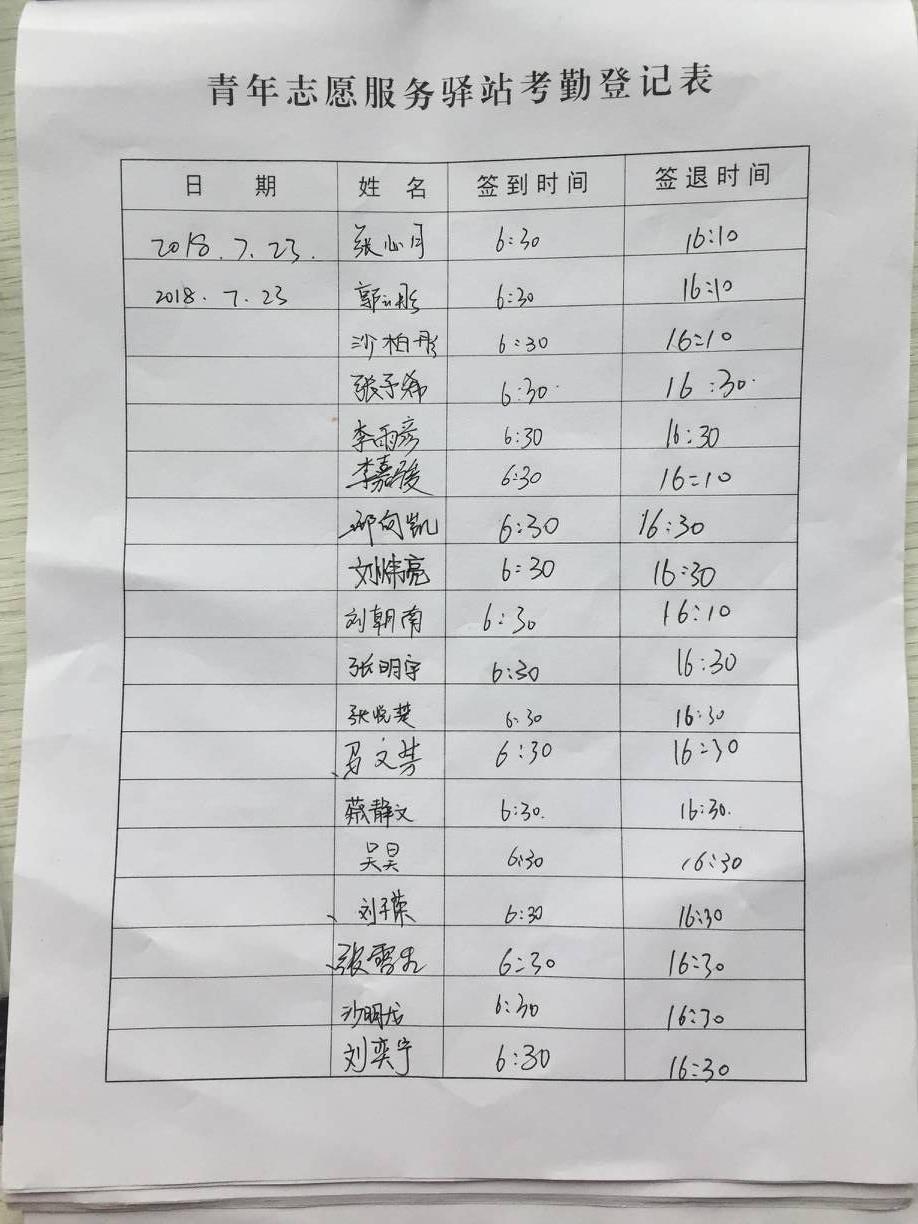 青年志愿服务驿站考勤登记表
日 期 姓 名 签到时间 签退时间
2018.7.23. 张心月 6:30 16:10
2018.7.23 郭 6:30 16:10
沙柏彤 6:30 16:10
张予希 6:30 16:30
李雨彦 6:30 16:30
李嘉骏 6:30 16:10
邱向凯 6:30 16:30
刘炜亮 6:30 16:30
刘朝南 6:30 16:10
张明宇 6:30 16:30
张悦楚 6:30 16:30
马文 6:30 16:30
静文 6:30. 16:30.
吴昊 6:30 16:30
刘子 6:30 16:30
张雪 6:30 16:30
沙明龙 6:30 16:30
刘奕宁 6:30 16:30